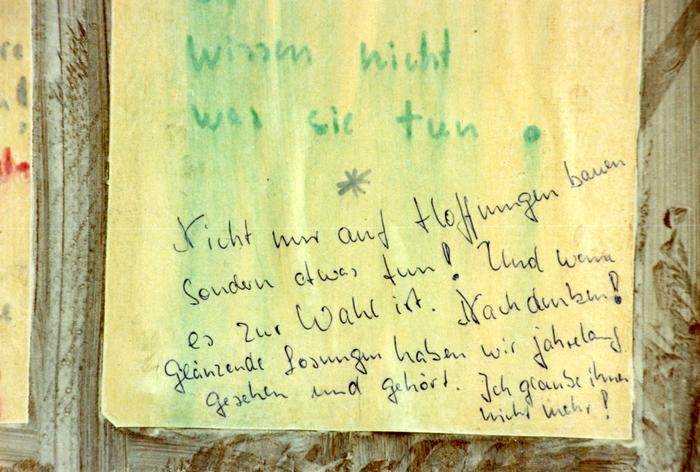 wissen nicht
was sie tun.
*
Nicht nur auf Hoffnungen bauen
sondern etwas tun! Und wenn
es zur Wahl ist. Nachdenken!
Glänzende Losungen haben wir jahrelang
gesehen und gehört. Ich glaube ihnen
nicht mehr!